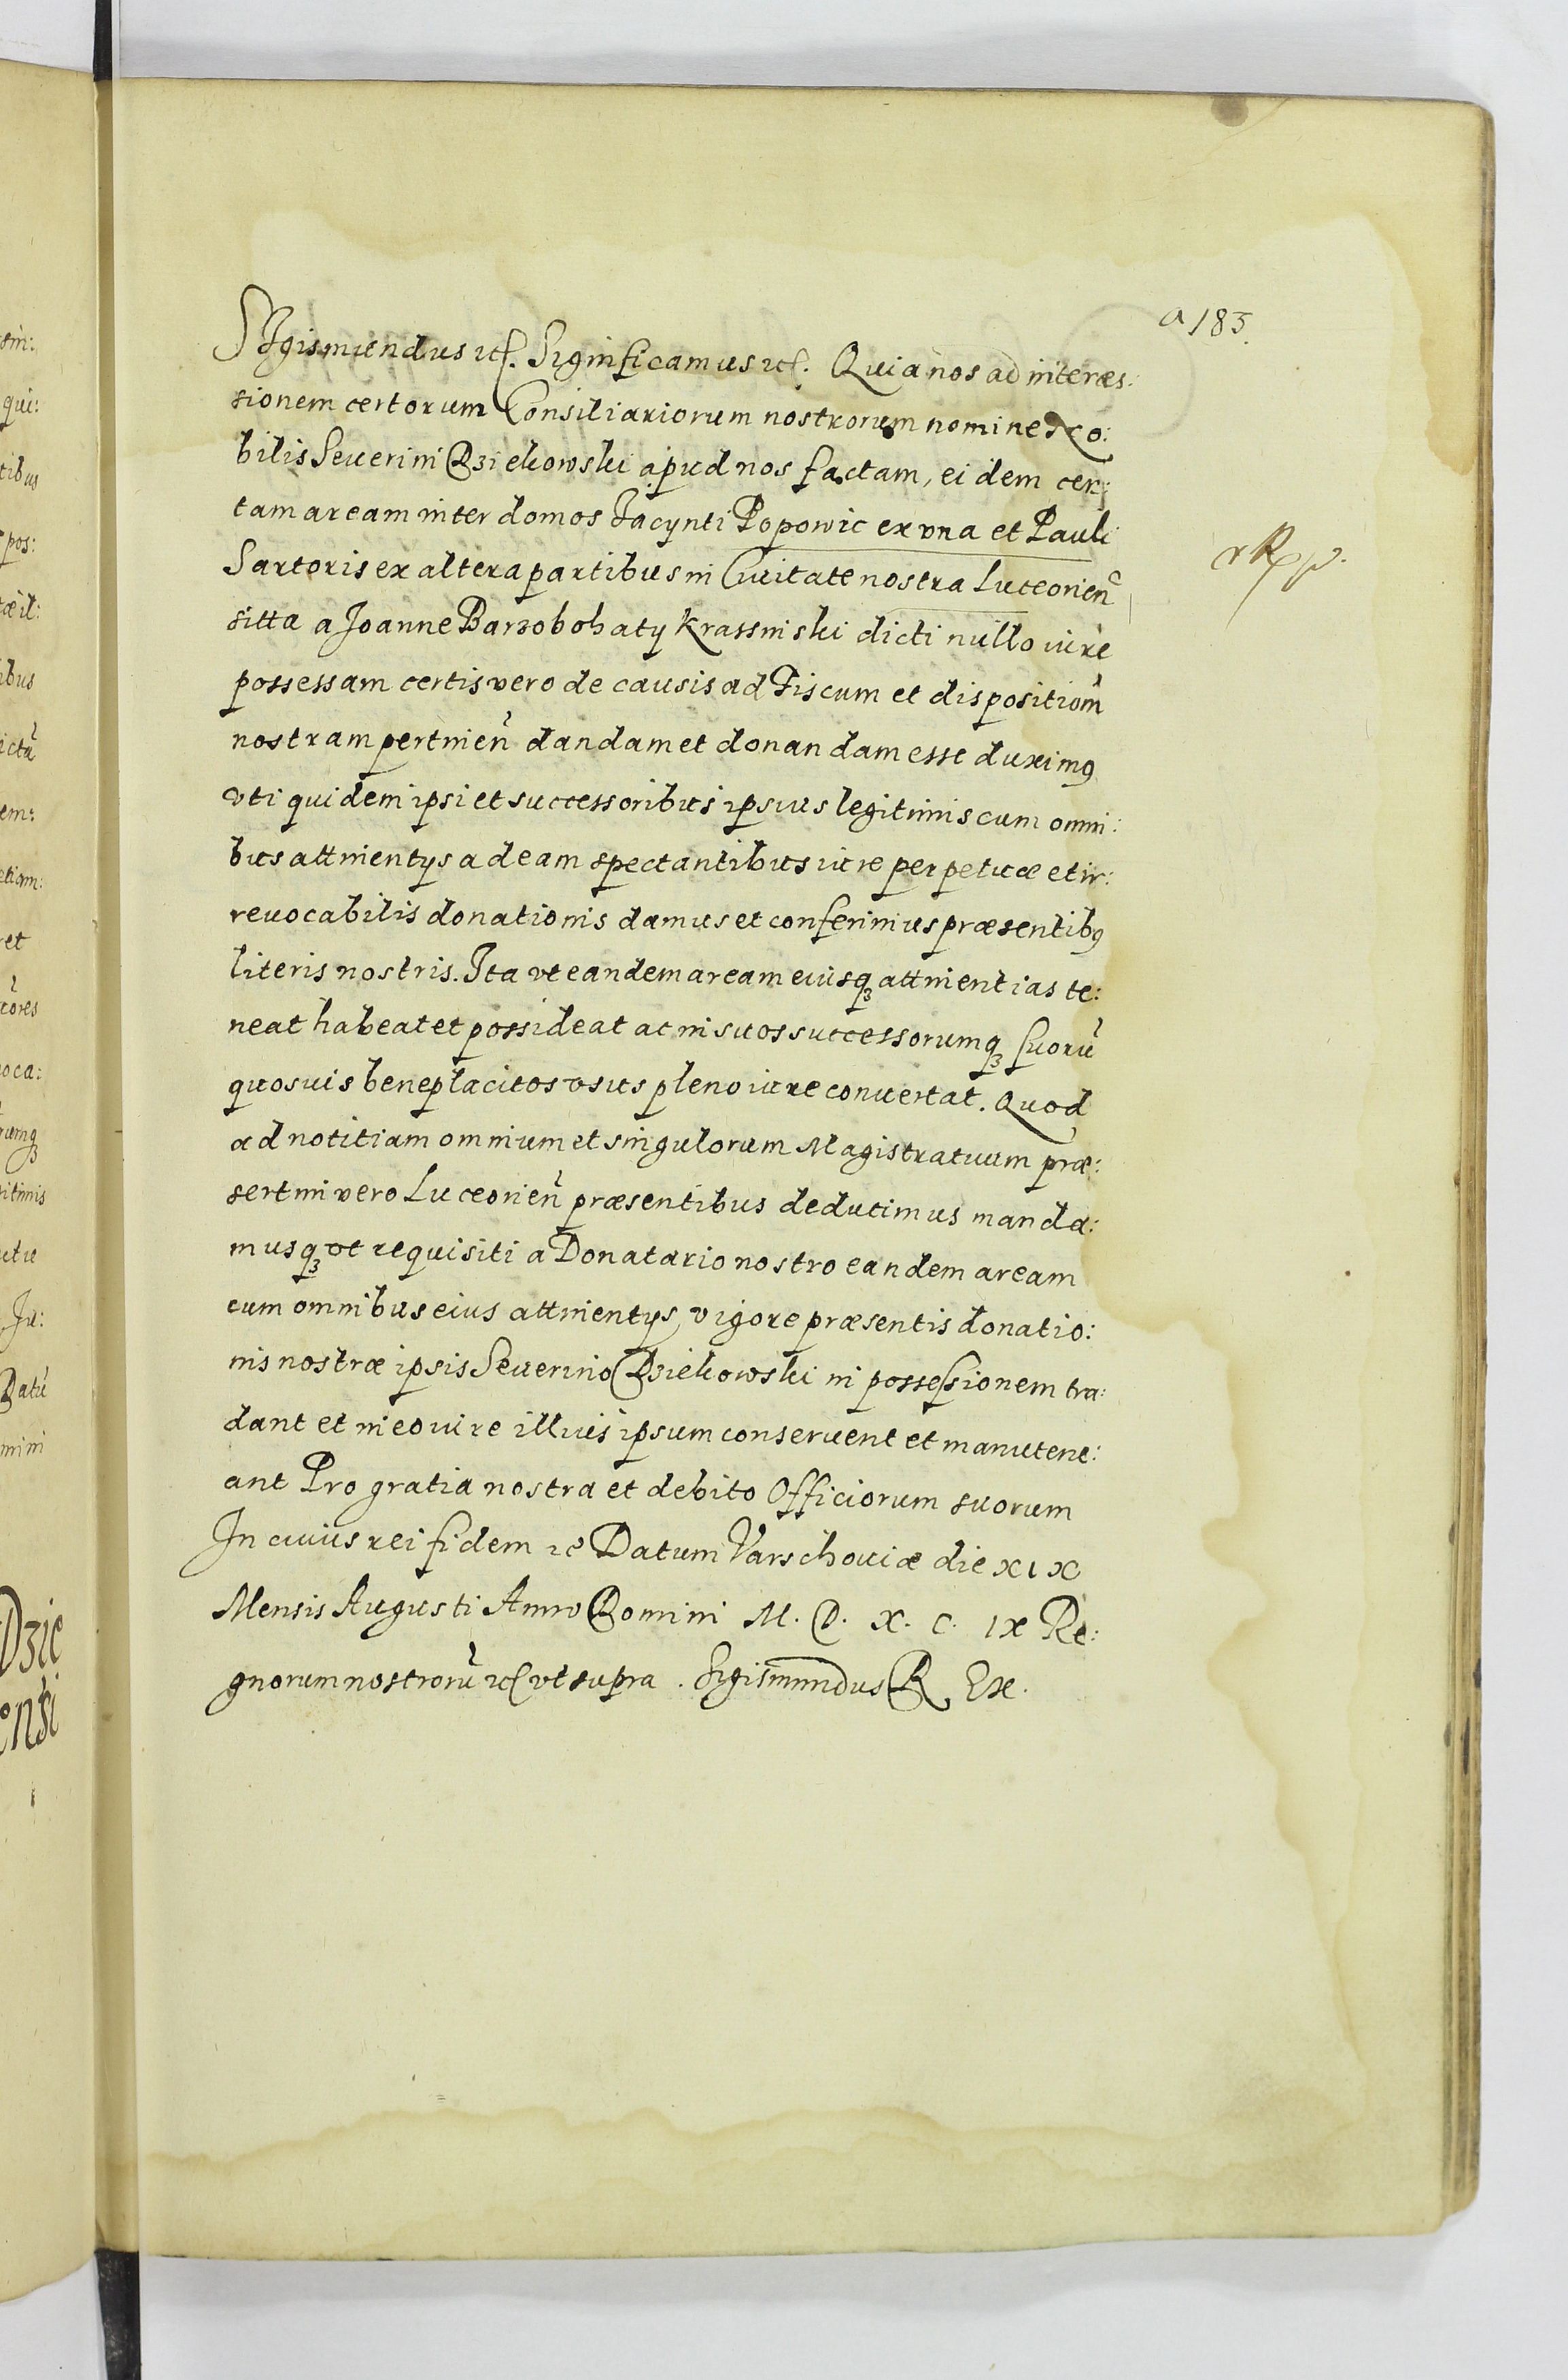 a 183.
SJgismundus etc. Significamus etc. Quia nos ad interces:
sionem certorum Consiliariorum nostrorum nomine No:
bilis Seuerini Dziekowski apud nos factam, eidem cer:
tam aream inter domos Jacynti Popowic ex vna et Pauli
Sartoris ex altera partibus in Ciuitate nostra Luceorien̄
sitta a Joanne Barzobohaty Krassinski dicti nullo iure
possessam certis vero de causis ad Fiscum et dispositiōm
nostram pertinen̄ dandam et donandam esse duximꝰ
vti quidem ipsi et successoribus ipsius legitimis cum omni:
bus attinentys ad eam spectantibus iure perpetuæ et ir:
reuocabilis donationis damus et conferimus præsentibꝰ
literis nostris. Ita vt eandem aream eiusqꝫ attinentias te:
neat habeat et possideat ac in suos successorumqꝫ suorū
quosuis beneplacitos vsus pleno iure conuertat. Quod
ad notitiam omnium et singulorum Magistratuum præ:
sertim vero Luceorien̄ præsentibus deducimus manda:
musqꝫ vt requisiti a Donatario nostro eandem aream
cum omnibus eius attinentys vigore præsentis donatio:
nis nostræ ipsis Seuerino Dziekowski in possessionem tra:
dant et in eo iure illius ipsum conseruent et manutene:
ant Pro gratia nostra et debito Officiorum suorum
In cuius rei fidem etc Datum Varschouiæ die XIX
Mensis Augusti Anno Domini M. D. X. C. IX Re:
gnorum nostrorū etc vt supra. Sigismundus R Ex.